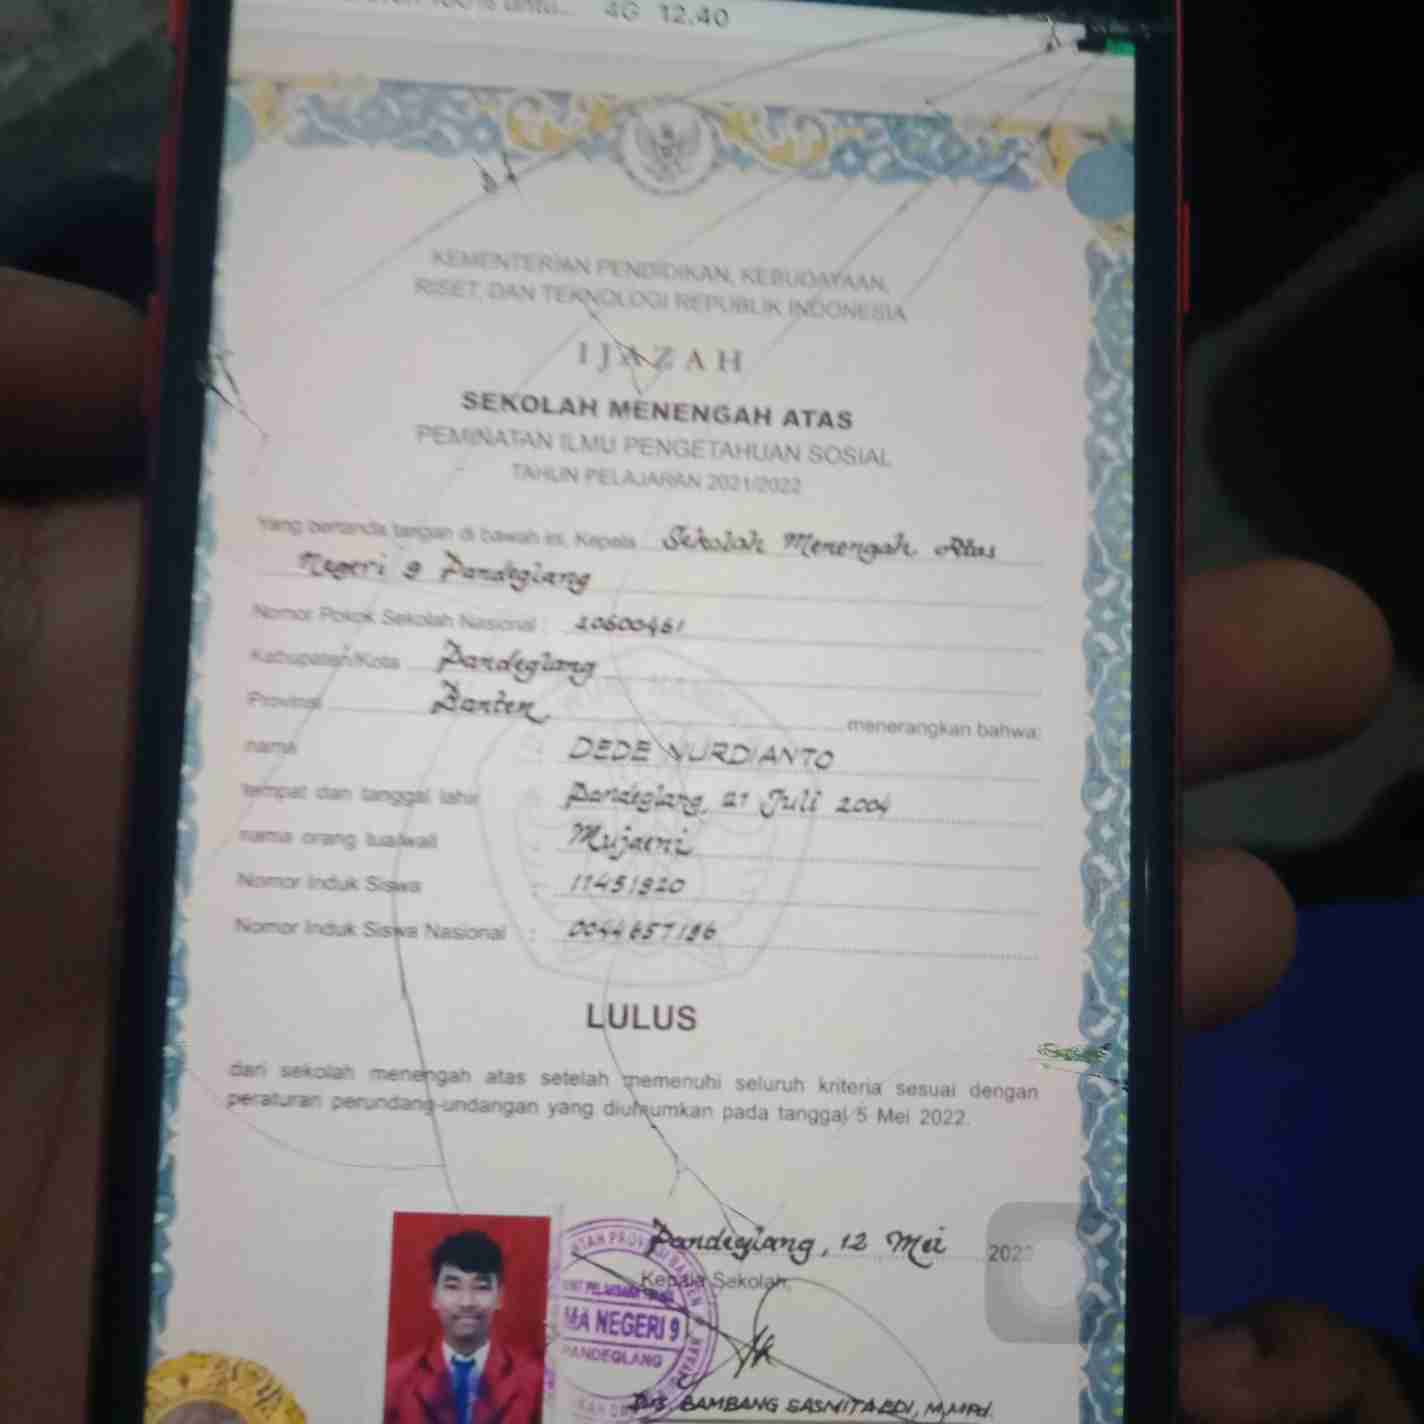 4G 12.40
KEMENTERIAN PENDIDIKAN, KEBUDAYAAN,
RISET, DAN TEKNOLOGI REPUBLIK INDONESIA
IJAZAH
SEKOLAH MENENGAH ATAS
PEMINATAN ILMU PENGETAHUAN SOSIAL
TAHUN PELAJARAN 2021/2022
Yang bertanda tangan di bawah ini, Kepala Sekolah Menengah Atas
Negeri 9 Pandeglang
Nomor Pokok Sekolah Nasional : 20600461
Kabupaten/Kota Pandeglang
Provinsi Banten menerangkan bahwa:
nama : DEDE NURDIANTO
tempat dan tanggal lahir : Pandeglang, 21 Juli 2004
nama orang tua/wali : Mujaeni
Nomor Induk Siswa : 11451920
Nomor Induk Siswa Nasional : 0044657196
LULUS
dari sekolah menengah atas setelah memenuhi seluruh kriteria sesuai dengan
peraturan perundang-undangan yang diumumkan pada tanggal 5 Mei 2022.
Pandeglang, 12 Mei 2022
Kepala Sekolah,
MA NEGERI 9
PANDEGLANG
Drs. BAMBANG SASMITA ADI, M.MPd.